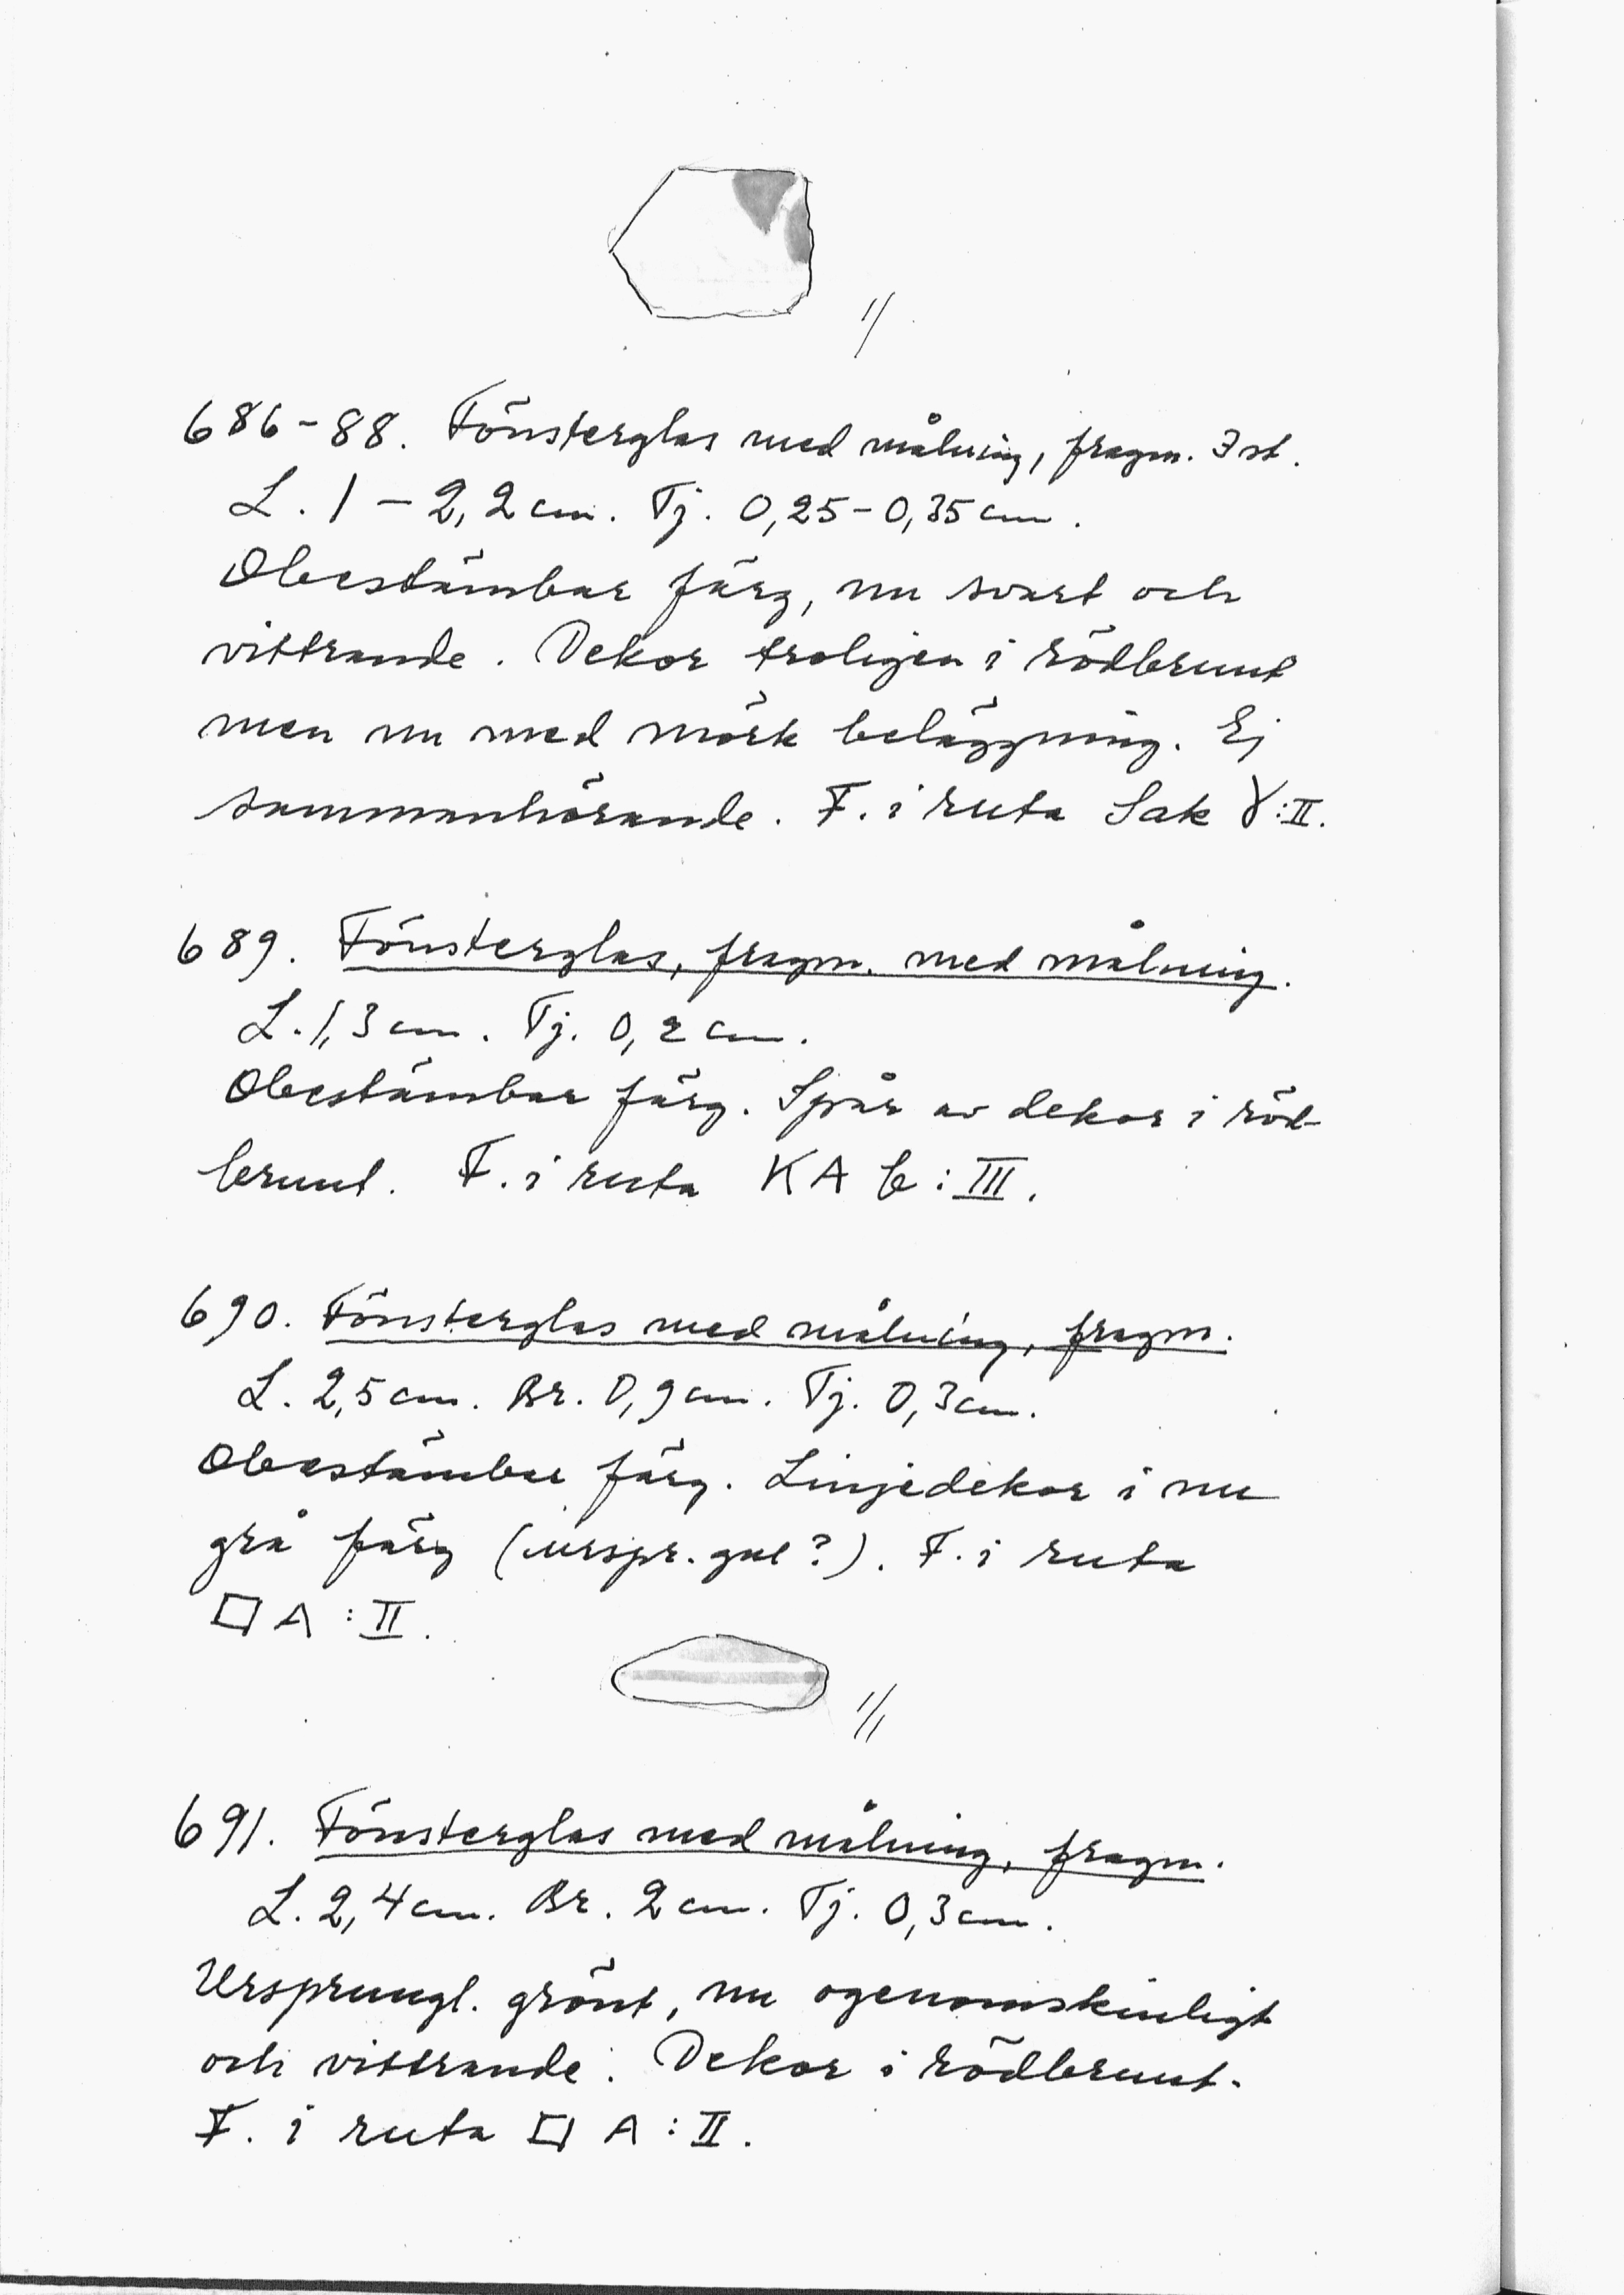 1/
686-88. Fönsterglas med målning, fragm. 3 st.
L. 1 – 2,2 cm. Tj. 0,25 – 0,35 cm.
Obestämbar färg, nu svart och
vittrande. Dekor troligen i rödbrunt
men nu med mörk beläggning. Ej
sammanhörande. F. i ruta Sak γ:II.
689. Fönsterglas, fragm. med målning.
L. 1,3 cm. Tj. 0,2 cm.
Obestämbar färg. Spår av dekor i röd-
brunt. F. i ruta KA b:III.
690. Fönsterglas med målning, fragm.
L. 2,5 cm. Br. 0,9 cm. Tj. 0,3 cm.
Obestämbar färg. Linjedekor i nu
grå färg (urspr. gul?). F. i ruta
□ A:II.
1/1
691. Fönsterglas med målning, fragm.
L. 2,4 cm. Br. 2 cm. Tj. 0,3 cm.
Ursprungl. grönt, nu ogenomskinligt
och vittrande. Dekor i rödbrunt.
F. i ruta □ A:II.